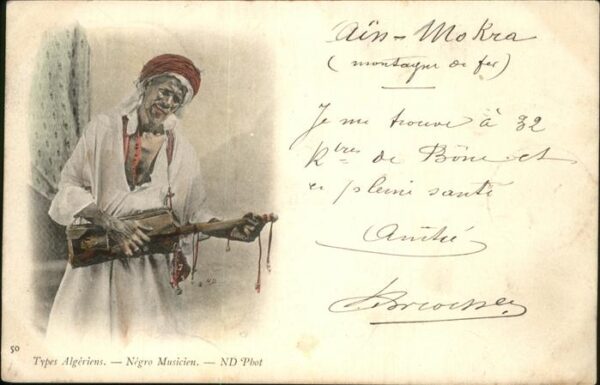 Aïn-Mokra
(montagne de fer)
Je me trouve à 32
Ktres de Bône et
en pleine santé
Amitié
50
Types Algériens. — Négro Musicien. — ND Phot